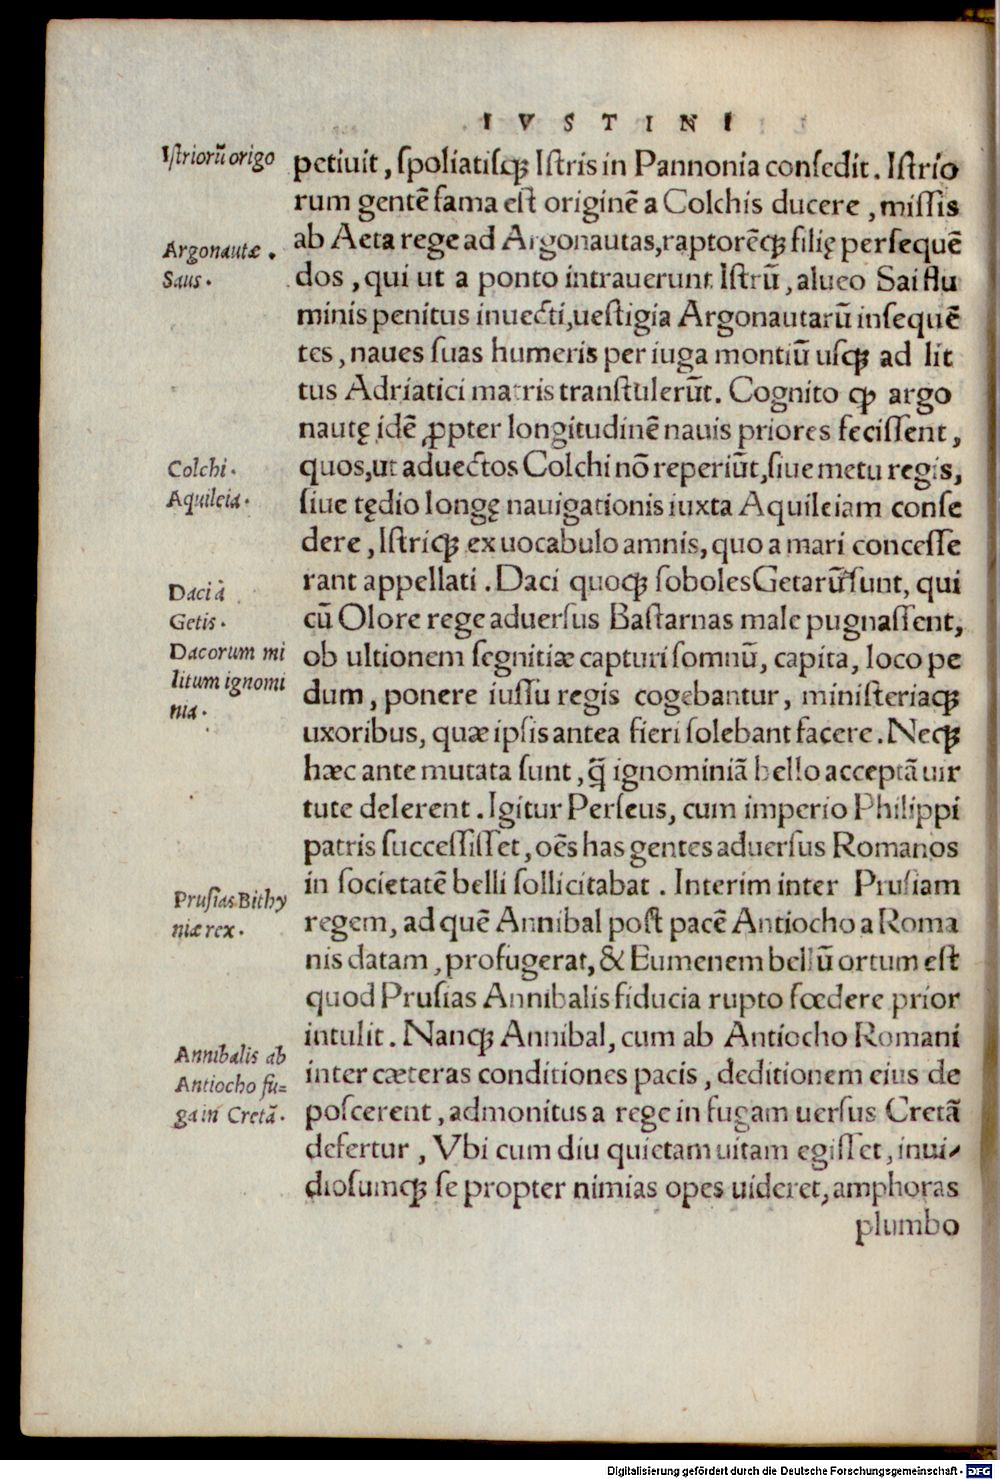 IVSTINI
Istriorū origo
petiuit, spoliatisq; Istris in Pannonia consedit. Istrio
rum gentē fama est originē a Colchis ducere, missis
Argonautæ.
ab Aeta rege ad Argonautas, raptorēq; filię persequē
Saus.
dos, qui ut a ponto intrauerunt Istrū, alueo Sai flu
minis penitus inuecti, uestigia Argonautarū insequē
tes, naues suas humeris per iuga montiū usq; ad lit
tus Adriatici matris transtulerūt. Cognito ꝙ argo
nautę idē ꝓpter longitudinē nauis priores fecissent,
Colchi.
quos, ut aduectos Colchi nō reperiūt, siue metu regis,
Aquileia.
siue tędio longę nauigationis iuxta Aquileiam conse
dere, Istriq; ex uocabulo amnis, quo a mari concesse
Daci à
rant appellati. Daci quoq; soboles Getarū sunt, qui
Getis.
cū Olore rege aduersus Bastarnas male pugnassent,
Dacorum mi
ob ultionem segnitiæ capturi somnū, capita, loco pe
litum ignomi
dum, ponere iussu regis cogebantur, ministeriaq;
nia.
uxoribus, quæ ipsis antea fieri solebant facere. Neq;
hæc ante mutata sunt, q̄ ignominiā bello acceptā uir
tute delerent. Igitur Perseus, cum imperio Philippi
patris successisset, oēs has gentes aduersus Romanos
in societatē belli sollicitabat. Interim inter Prusiam
Prusias Bithy
regem, ad quē Annibal post pacē Antiocho a Roma
niæ rex.
nis datam, profugerat, & Eumenem bellū ortum est
quod Prusias Annibalis fiducia rupto fœdere prior
intulit. Nanq; Annibal, cum ab Antiocho Romani
Annibalis ab
inter cæteras conditiones pacis, deditionem eius de
Antiocho fu=
poscerent, admonitus a rege in fugam uersus Cretā
ga in Cretā.
defertur, Vbi cum diu quietam uitam egisset, inui-
diosumq; se propter nimias opes uideret, amphoras
plumbo
Digitalisierung gefördert durch die Deutsche Forschungsgemeinschaft - DFG